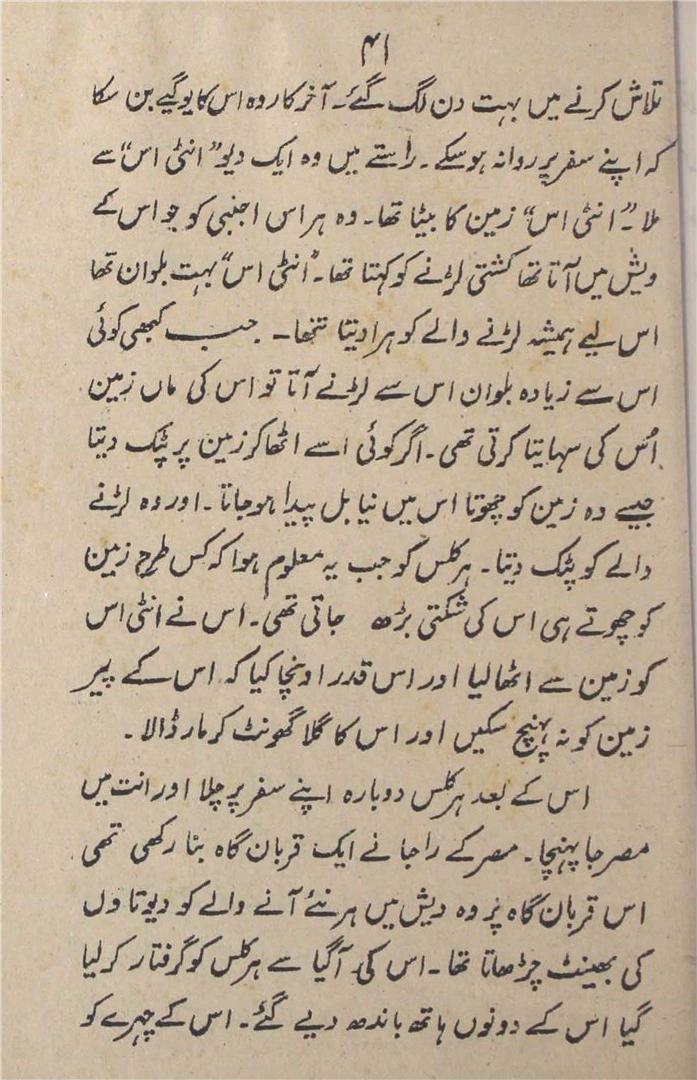 ۴۱
تلاش کرنے میں بہت دن لگ گئے۔ آخر کار وہ اس کا یوگیے بن سکا
کہ اپنے سفر پر روانہ ہو سکے۔ راستے میں وہ ایک دیو ”انٹی اس“ سے
ملا۔ ”انٹی اس“ زمین کا بیٹا تھا۔ وہ ہر اس اجنبی کو جو اس کے
ویش میں آتا تھا کشتی لڑنے کو کہتا تھا۔ ”انٹی اس“ بہت بلوان تھا
اس لیے ہمیشہ لڑنے والے کو ہرا دیتا تھا۔ جب کبھی کوئی
اس سے زیادہ بلوان اس سے لڑنے آتا تو اس کی ماں زمین
اُس کی سہایتا کرتی تھی۔ اگر کوئی اسے اٹھا کر زمین پر پٹک دیتا
جیسے وہ زمین کو چھوتا اس میں نیا بل پیدا ہو جاتا۔ اور وہ لڑنے
والے کو پٹک دیتا۔ ہرکلس کو جب یہ معلوم ہوا کہ کس طرح زمین
کو چھوتے ہی اس کی شکتی بڑھ جاتی تھی۔ اس نے انٹی اس
کو زمین سے اٹھا لیا اور اس قدر اونچا کیا کہ اس کے پیر
زمین کو نہ پہنچ سکیں اور اس کا گلا گھونٹ کر مار ڈالا۔
اس کے بعد ہرکلس دوبارہ اپنے سفر پر چلا اور انت میں
مصر جا پہنچا۔ مصر کے راجا نے ایک قربان گاہ بنا رکھی تھی
اس قربان گاہ پر وہ دیش میں ہر نئے آنے والے کو دیوتاوں
کی بھینٹ چڑھاتا تھا۔ اس کی آگیا سے ہرکلس کو گرفتار کر لیا
گیا اس کے دونوں ہاتھ باندھ دیے گئے۔ اس کے چہرے کو